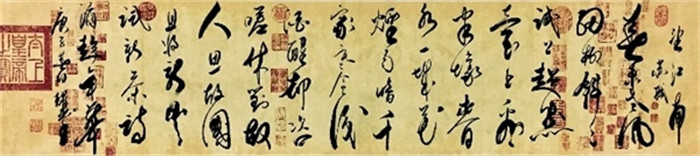 望江南
春未老風
細柳斜斜
試上超然
臺上看
半壕春
水一城花
煙雨暗千
家寒食後
酒醒卻咨
嗟休對故
人思故國
且將新火
試新茶詩
酒趁年華
太上
皇帝
之寶